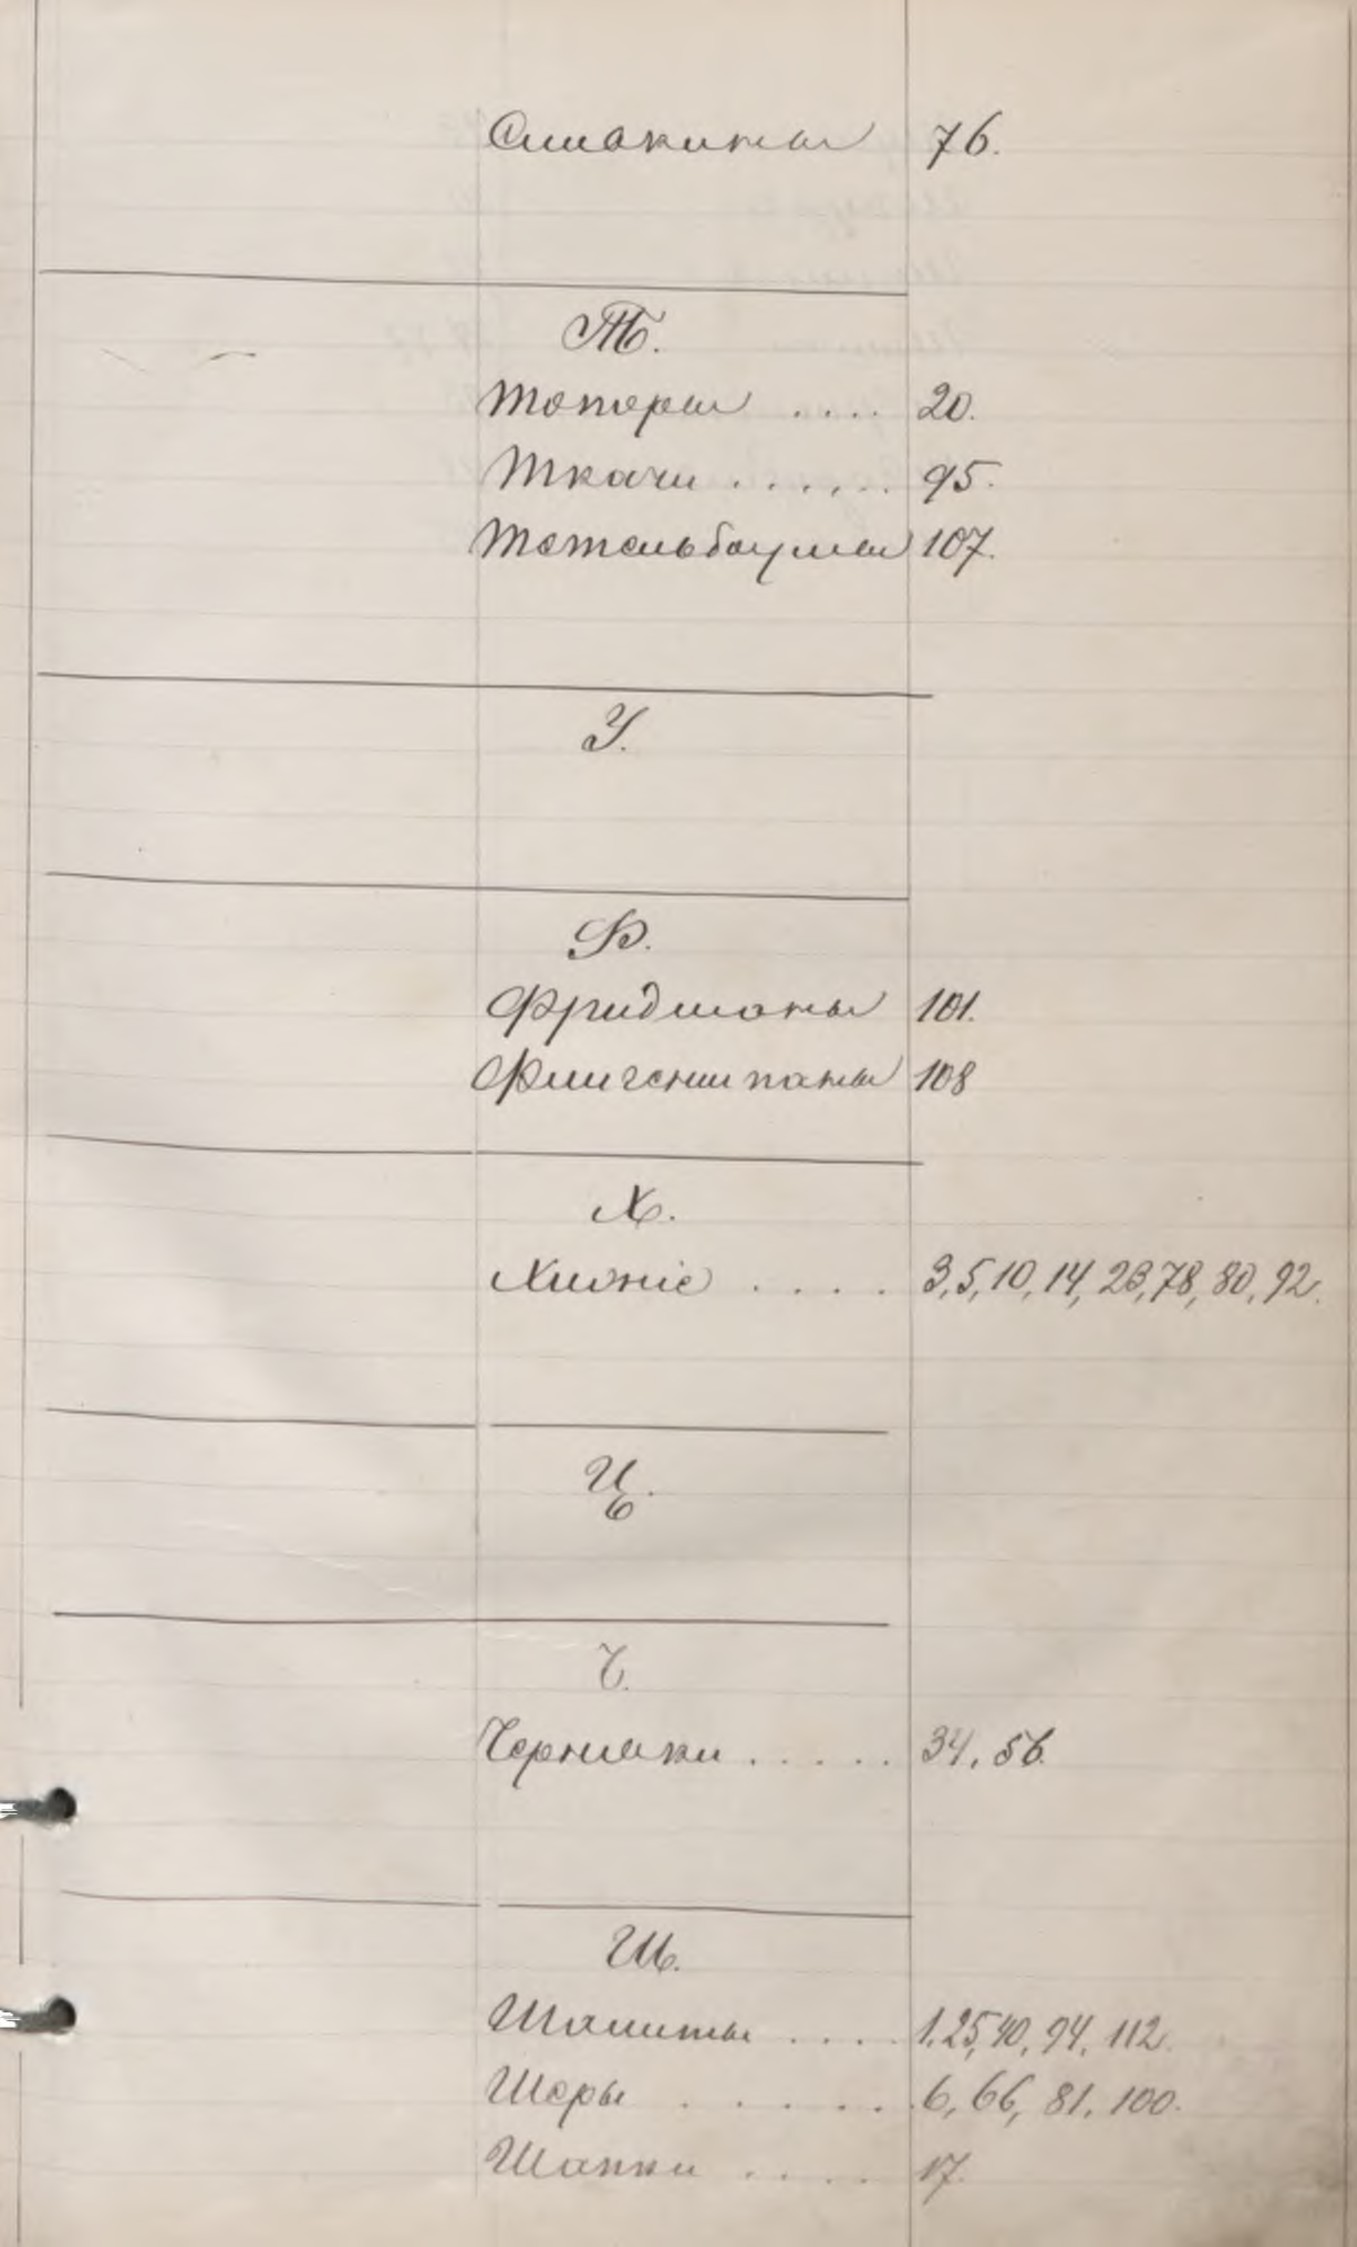 Сливкины 76.
Т.
Топоры .... 20.
Ткачи ...... 95.
Тетельбаумы 107.
У.
Ф.
Фридманы 101.
108
Х.
3, 5, 10, 14, 23, 78, 80, 92.
Ц.
Ч.
Черняки ..... 34, 56.
Ш.
.... 1, 25, 40, 94, 112.
Шеры ...... 6, 66, 81, 100.
Шапки .... 17.